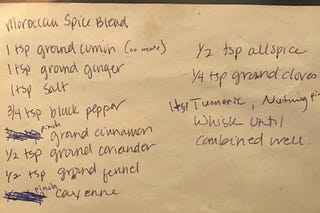 Moroccan Spice Blend
1 tsp ground cumin (or more)
1 tsp ground ginger
1 tsp salt
3/4 tsp black pepper
pinch ground cinnamon
1/2 tsp ground coriander
1/2 tsp ground fennel
pinch cayenne
1/2 tsp allspice
1/4 tsp ground cloves
1 tsp Tumeric, Nutmeg pin
Whisk until
combined well.